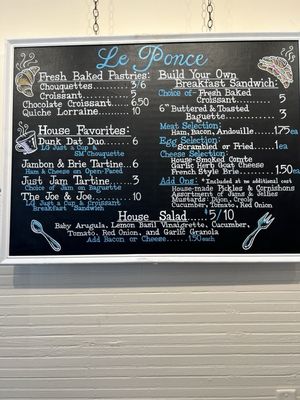 Le Ponce
Fresh Baked Pastries:
Chouquettes......... 3/6
Croissant............ 5
Chocolate Croissant.... 6.50
Quiche Lorraine....... 10
House Favorites:
Dunk Dat Duo.......... 6
LG Just a Cup &
SM Chouquette
Jambon & Brie Tartine.. 6
Ham & Cheese on Open-Faced
Just Jam Tartine....... 3
Choice of Jam on Baguette
The Joe & Joe.......... 10
LG Just a Cup & Croissant
Breakfast Sandwich
Build Your Own
Breakfast Sandwich:
Choice of- Fresh Baked
Croissant............ 5
6" Buttered & Toasted
Baguette............. 3
Meat Selection:
Ham, Bacon, Andouille.....1.75 ea
Egg Selection:
Scrambled or Fried.....1 ea
Cheese Selection:
House-Smoked Comte
Garlic Herb Goat Cheese
French Style Brie........1.50 ea
Add Ons: *Included at no additional cost
House-made Pickles & Cornishons
Assortment of Jams & Jellies
Mustards: Dijon, Creole
Cucumber, Tomato, Red Onion
House Salad....$5/10
Baby Arugula, Lemon Basil Vinaigrette, Cucumber,
Tomato, Red Onion, and Garlic Granola
Add Bacon or Cheese.....1.50 each